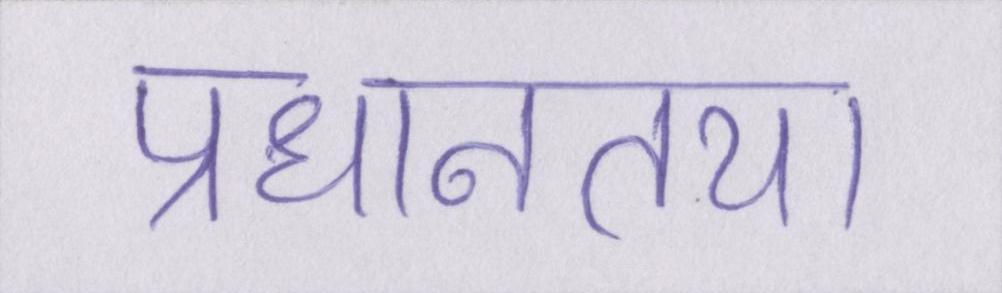 प्रधानतया